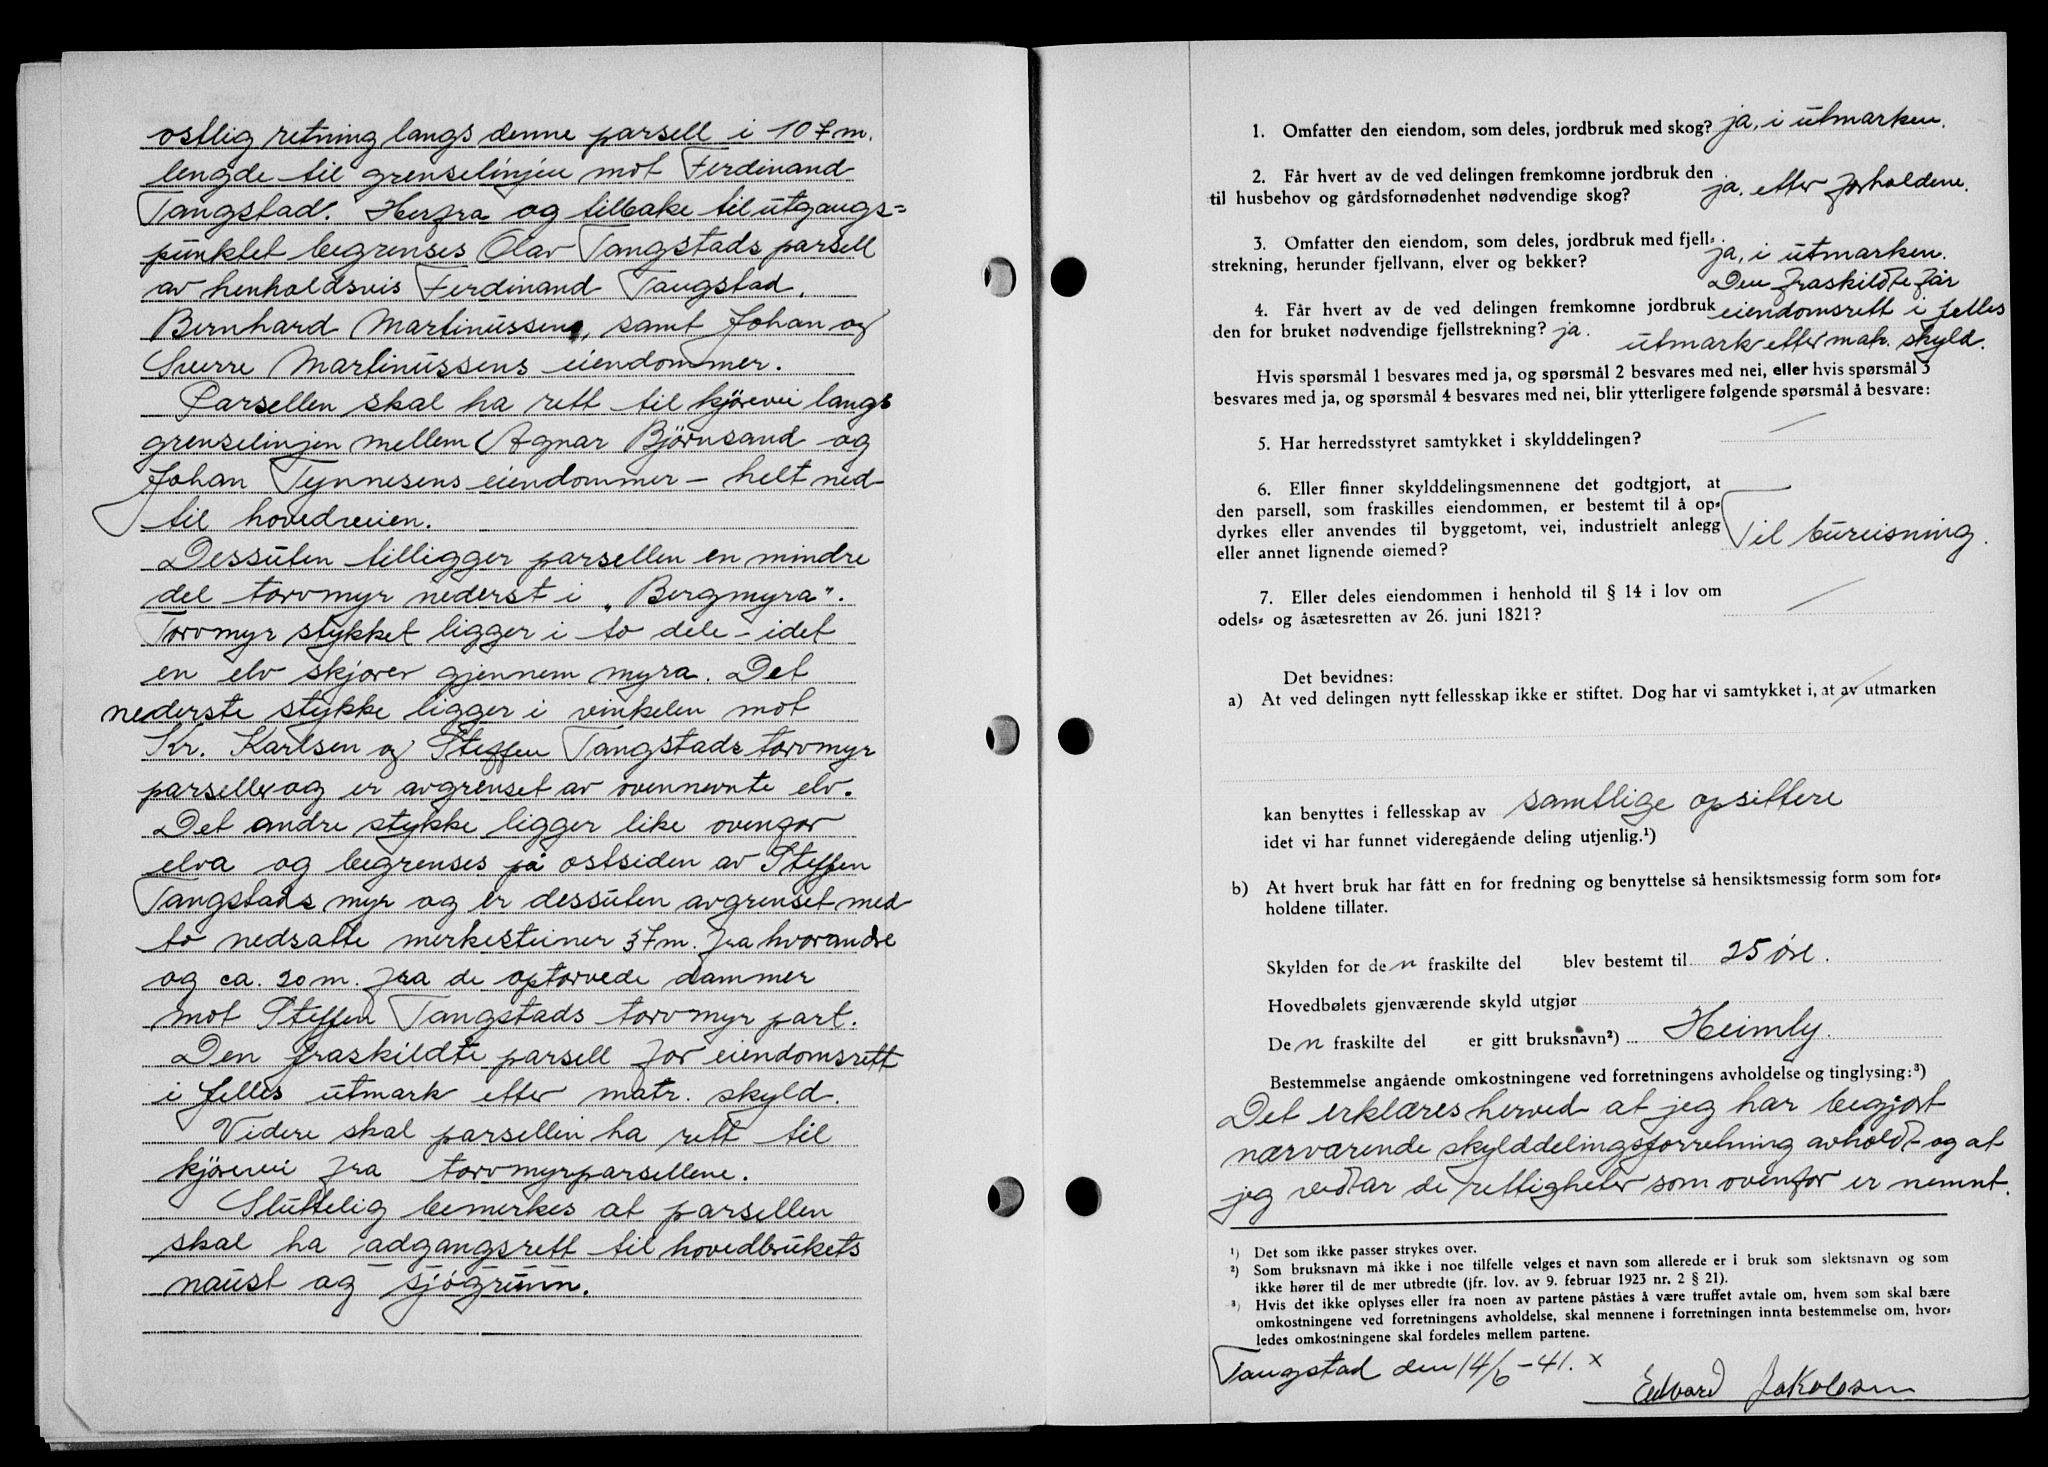 ostlig retning langs denne parsell i 107 m.
lengde til grenselinjen mot Ferdinand
Tangstad. Herfra og tilbake til utgangs=
punktet begrenses Olav Tangstads parsell
av henholdsvis Ferdinand Tangstad,
Bernhard Martinussen, samt Johan og
Sverre Martinussens eiendommer.
Parsellen skal ha rett til kjörevei langs
grenselinjen mellem Agnar Björnsand og
Johan Tynnesens eiendommer – helt ned
til hovedveien.
Dessuten tilligger parsellen en mindre
del torvmyr nederst i „Bergmyra".
Torvmyr stykket ligger i to dele – idet
en elv skjærer gjennem myra. Det
nederste stykke ligger i vinkelen mot
Kr. Karlsen og Steffen Tangstads torvmyr
parseller og er avgrenset av ovennevnte elv.
Det andre stykke ligger like ovenfor
elva og begrenses på ostsiden av Steffen
Tangstads myr og er dessuten avgrenset med
to nedsatte merkesteiner 37 m. fra hverandre
og ca. 20 m. fra de optorvede dammer
mot Steffen Tangstads torvmyr part.
Den fraskildte parsell for eiendomsrett
i felles utmark etter matr. skyld.
Videre skal parsellen ha rett til
kjörevei fra torvmyrparsellene.
Sluttelig bemerkes at parsellen
skal ha adgangsrett til hovedbrukets
naust og sjögrunn.
1. Omfatter den eiendom, som deles, jordbruk med skog? ja, i utmarken.
2. Får hvert av de ved delingen fremkomne jordbruk den
til husbehov og gårdsfornødenhet nødvendige skog? ja. etter forholdene.
3. Omfatter den eiendom, som deles, jordbruk med fjell=
strekning, herunder fjellvann, elver og bekker? ja, i utmarken.
Den fraskildte får
4. Får hvert av de ved delingen fremkomne jordbruk eiendomsrett i felles
den for bruket nødvendige fjellstrekning? ja. utmark etter matr. skyld.
Hvis spørsmål 1 besvares med ja, og spørsmål 2 besvares med nei, eller hvis spørsmål 3
besvares med ja, og spørsmål 4 besvares med nei, blir ytterligere følgende spørsmål å besvare:
5. Har herredsstyret samtykket i skylddelingen? /
6. Eller finner skylddelingsmennene det godtgjort, at
den parsell, som fraskilles eiendommen, er bestemt til å op=
dyrkes eller anvendes til byggetomt, vei, industrielt anlegg
eller annet lignende øiemed? Til bureisning.
7. Eller deles eiendommen i henhold til § 14 i lov om
odels= og åsætesretten av 26. juni 1821? /
Det bevidnes:
a) At ved delingen nytt fellesskap ikke er stiftet. Dog har vi samtykket i, at av utmarken
kan benyttes i fellesskap av samtlige opsittere
idet vi har funnet videregående deling utjenlig.¹)
b) At hvert bruk har fått en for fredning og benyttelse så hensiktsmessig form som for=
holdene tillater.
Skylden for den fraskilte del blev bestemt til 25 øre.
Hovedbølets gjenværende skyld utgjør
Den fraskilte del er gitt bruksnavn²) Heimly.
Bestemmelse angående omkostningene ved forretningens avholdelse og tinglysing:³)
Det erklæres herved at jeg har begjært
nærværende skylddelingsforretning avholdt og at
jeg vedtar de rettigheter som ovenfor er nemnt.
¹) Det som ikke passer strykes over.
²) Som bruksnavn må ikke i noe tilfelle velges et navn som allerede er i bruk som slektsnavn og som
ikke hører til de mer utbredte (jfr. lov. av 9. februar 1923 nr. 2 § 21).
³) Hvis det ikke oplyses eller fra noen av partene påstås å være truffet avtale om, hvem som skal bære
omkostningene ved forretningens avholdelse, skal mennene i forretningen innta bestemmelse om, hvor=
ledes omkostningene skal fordeles mellem partene.
Tangstad den 14/6 – 41. x
Edvard Jakobsen